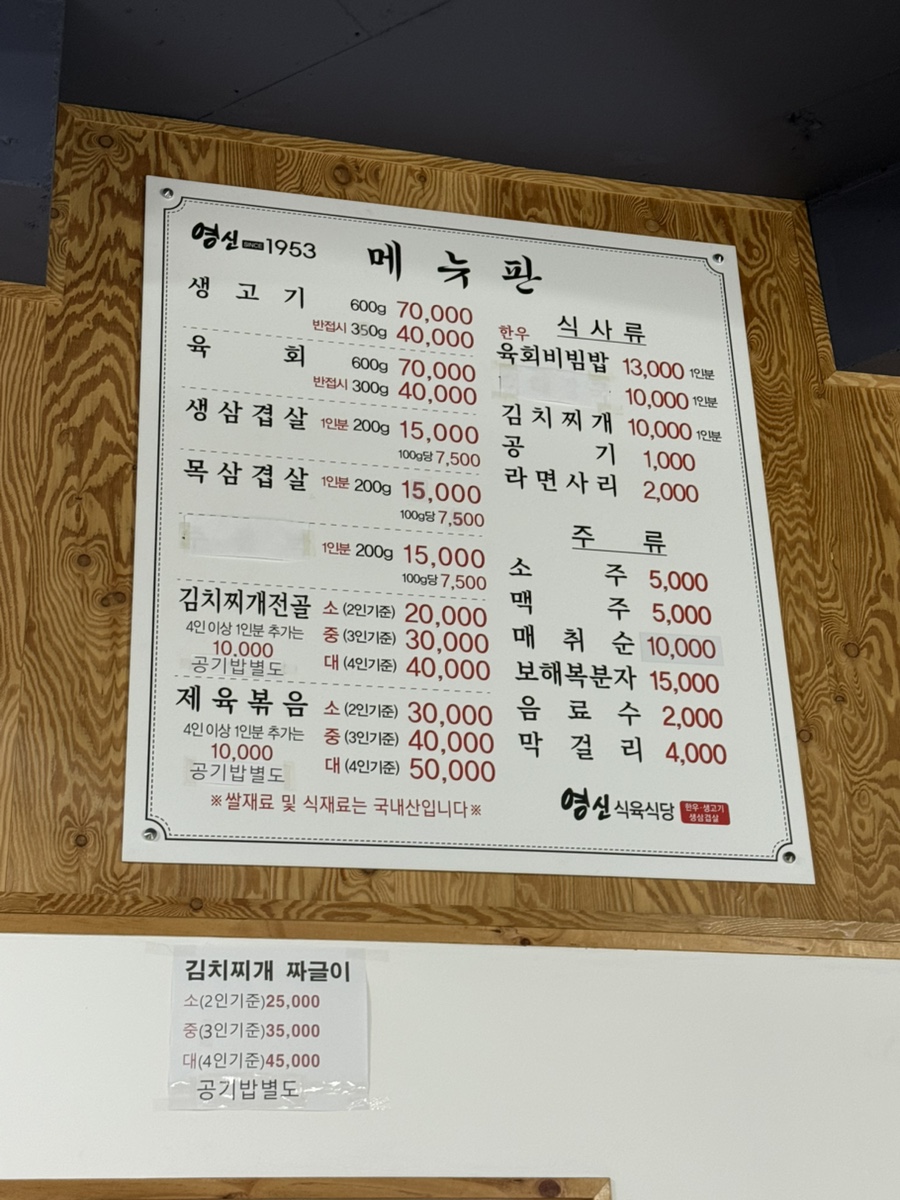 영신 SINCE 1953
메뉴판
생고기 600g 70,000
반접시 350g 40,000
육회 600g 70,000
반접시 300g 40,000
생삼겹살 1인분 200g 15,000
100g당 7,500
목삼겹살 1인분 200g 15,000
100g당 7,500
1인분 200g 15,000
100g당 7,500
김치찌개전골 소 (2인기준) 20,000
4인 이상 1인분 추가는 중 (3인기준) 30,000
10,000
공기밥별도 대 (4인기준) 40,000
제육볶음 소 (2인기준) 30,000
4인 이상 1인분 추가는 중 (3인기준) 40,000
10,000
공기밥별도 대 (4인기준) 50,000
※쌀재료 및 식재료는 국내산입니다※
식사류
한우
육회비빔밥 13,000 1인분
10,000 1인분
김치찌개 10,000 1인분
공기 1,000
라면사리 2,000
주류
소주 5,000
맥주 5,000
매취순 10,000
보해복분자 15,000
음료수 2,000
막걸리 4,000
영신식육식당 한우·생고기
생삼겹살
김치찌개 짜글이
소(2인기준)25,000
중(3인기준)35,000
대(4인기준)45,000
공기밥별도